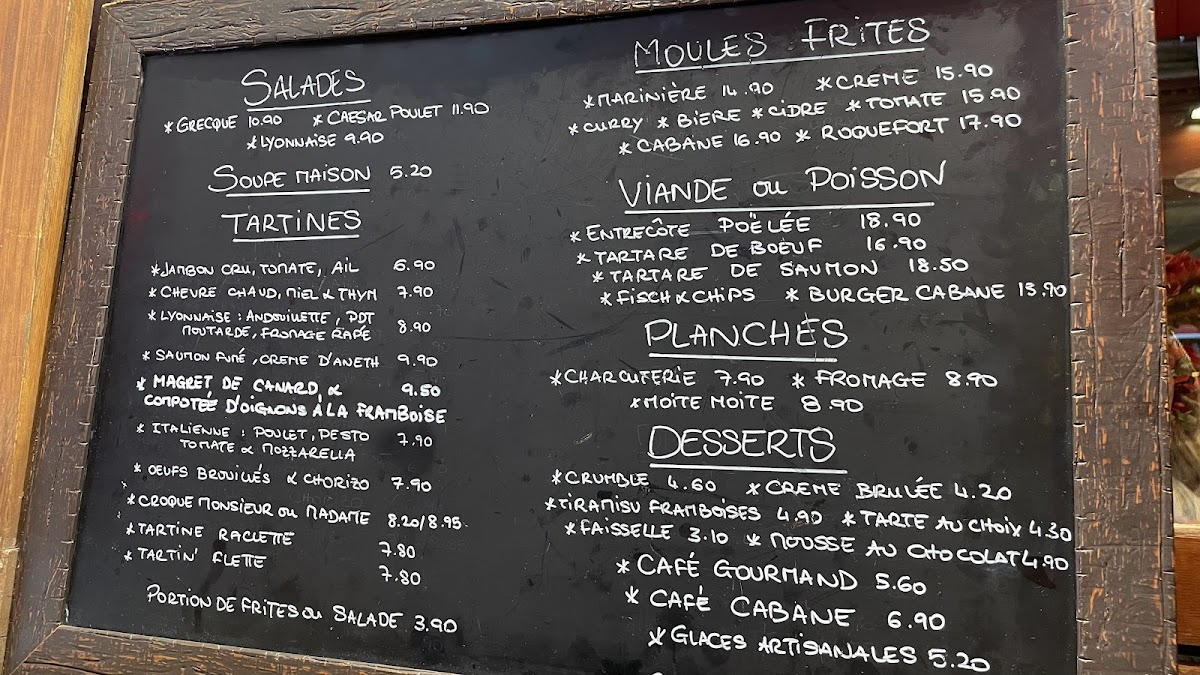 SALADES
*GRECQUE 10.90 *CAESAR POULET 11.90
*LYONNAISE 9.90
SOUPE MAISON 5.20
TARTINES
*JAMBON CRU, TOMATE, AIL 6.90
*CHEVRE CHAUD, MIEL & THYM 7.90
*LYONNAISE : ANDOUILLETTE, PDT
MOUTARDE, FROMAGE RAPE 8.90
*SAUMON FUMÉ, CREME D'ANETH 9.90
*MAGRET DE CANARD, & 9.50
COMPOTÉE D'OIGNONS À LA FRAMBOISE
*ITALIENNE : POULET, PESTO 7.90
TOMATE & MOZZARELLA
*OEUFS BROUILLÉS & CHORIZO 7.90
*CROQUE MONSIEUR OU MADAME 8.20/8.95
*TARTINE RACLETTE 7.80
*TARTIN' FLETTE 7.80
PORTION DE FRITES OU SALADE 3.90
MOULES FRITES
*MARINIÈRE 14.90 *CREME 15.90
*CURRY *BIERE *CIDRE *TOMATE 15.90
*CABANE 16.90 *ROQUEFORT 17.90
VIANDE OU POISSON
*ENTRECÔTE POËLÉE 18.90
*TARTARE DE BOEUF 16.90
*TARTARE DE SAUMON 18.50
*FISCH & CHIPS *BURGER CABANE 15.90
PLANCHES
*CHARCUTERIE 7.90 *FROMAGE 8.90
*MOITE MOITE 8.90
DESSERTS
*CRUMBLE 4.60 *CREME BRULÉE 4.20
*TIRAMISU FRAMBOISES 4.90 *TARTE AU CHOIX 4.30
*FAISSELLE 3.10 *MOUSSE AU CHOCOLAT 4.90
*CAFÉ GOURMAND 5.60
*CAFÉ CABANE 6.90
*GLACES ARTISANALES 5.20